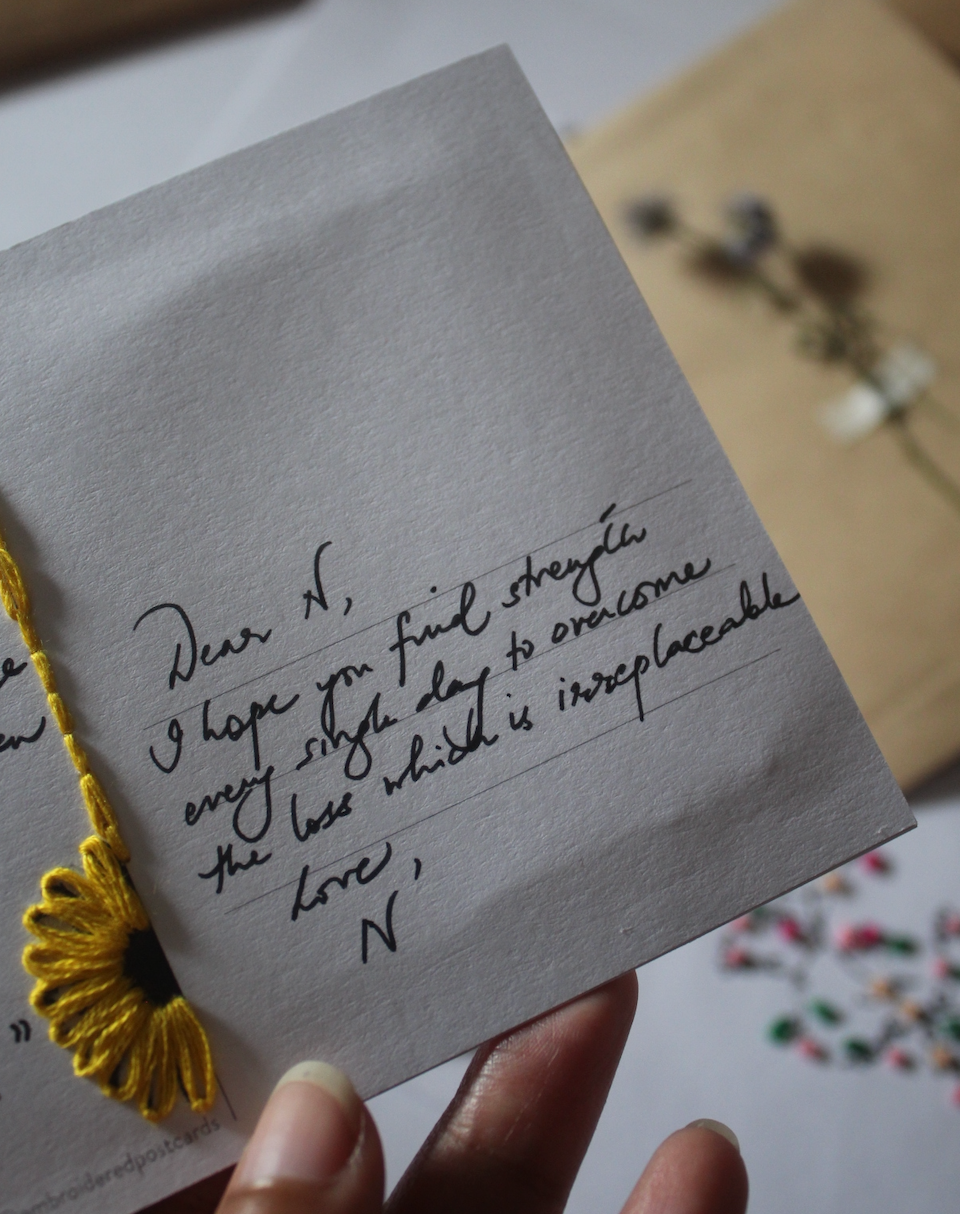 Dear N,
I hope you find strength
every single day to overcome
the loss which is irreplaceable
Love,
N
"
embroideredpostcards